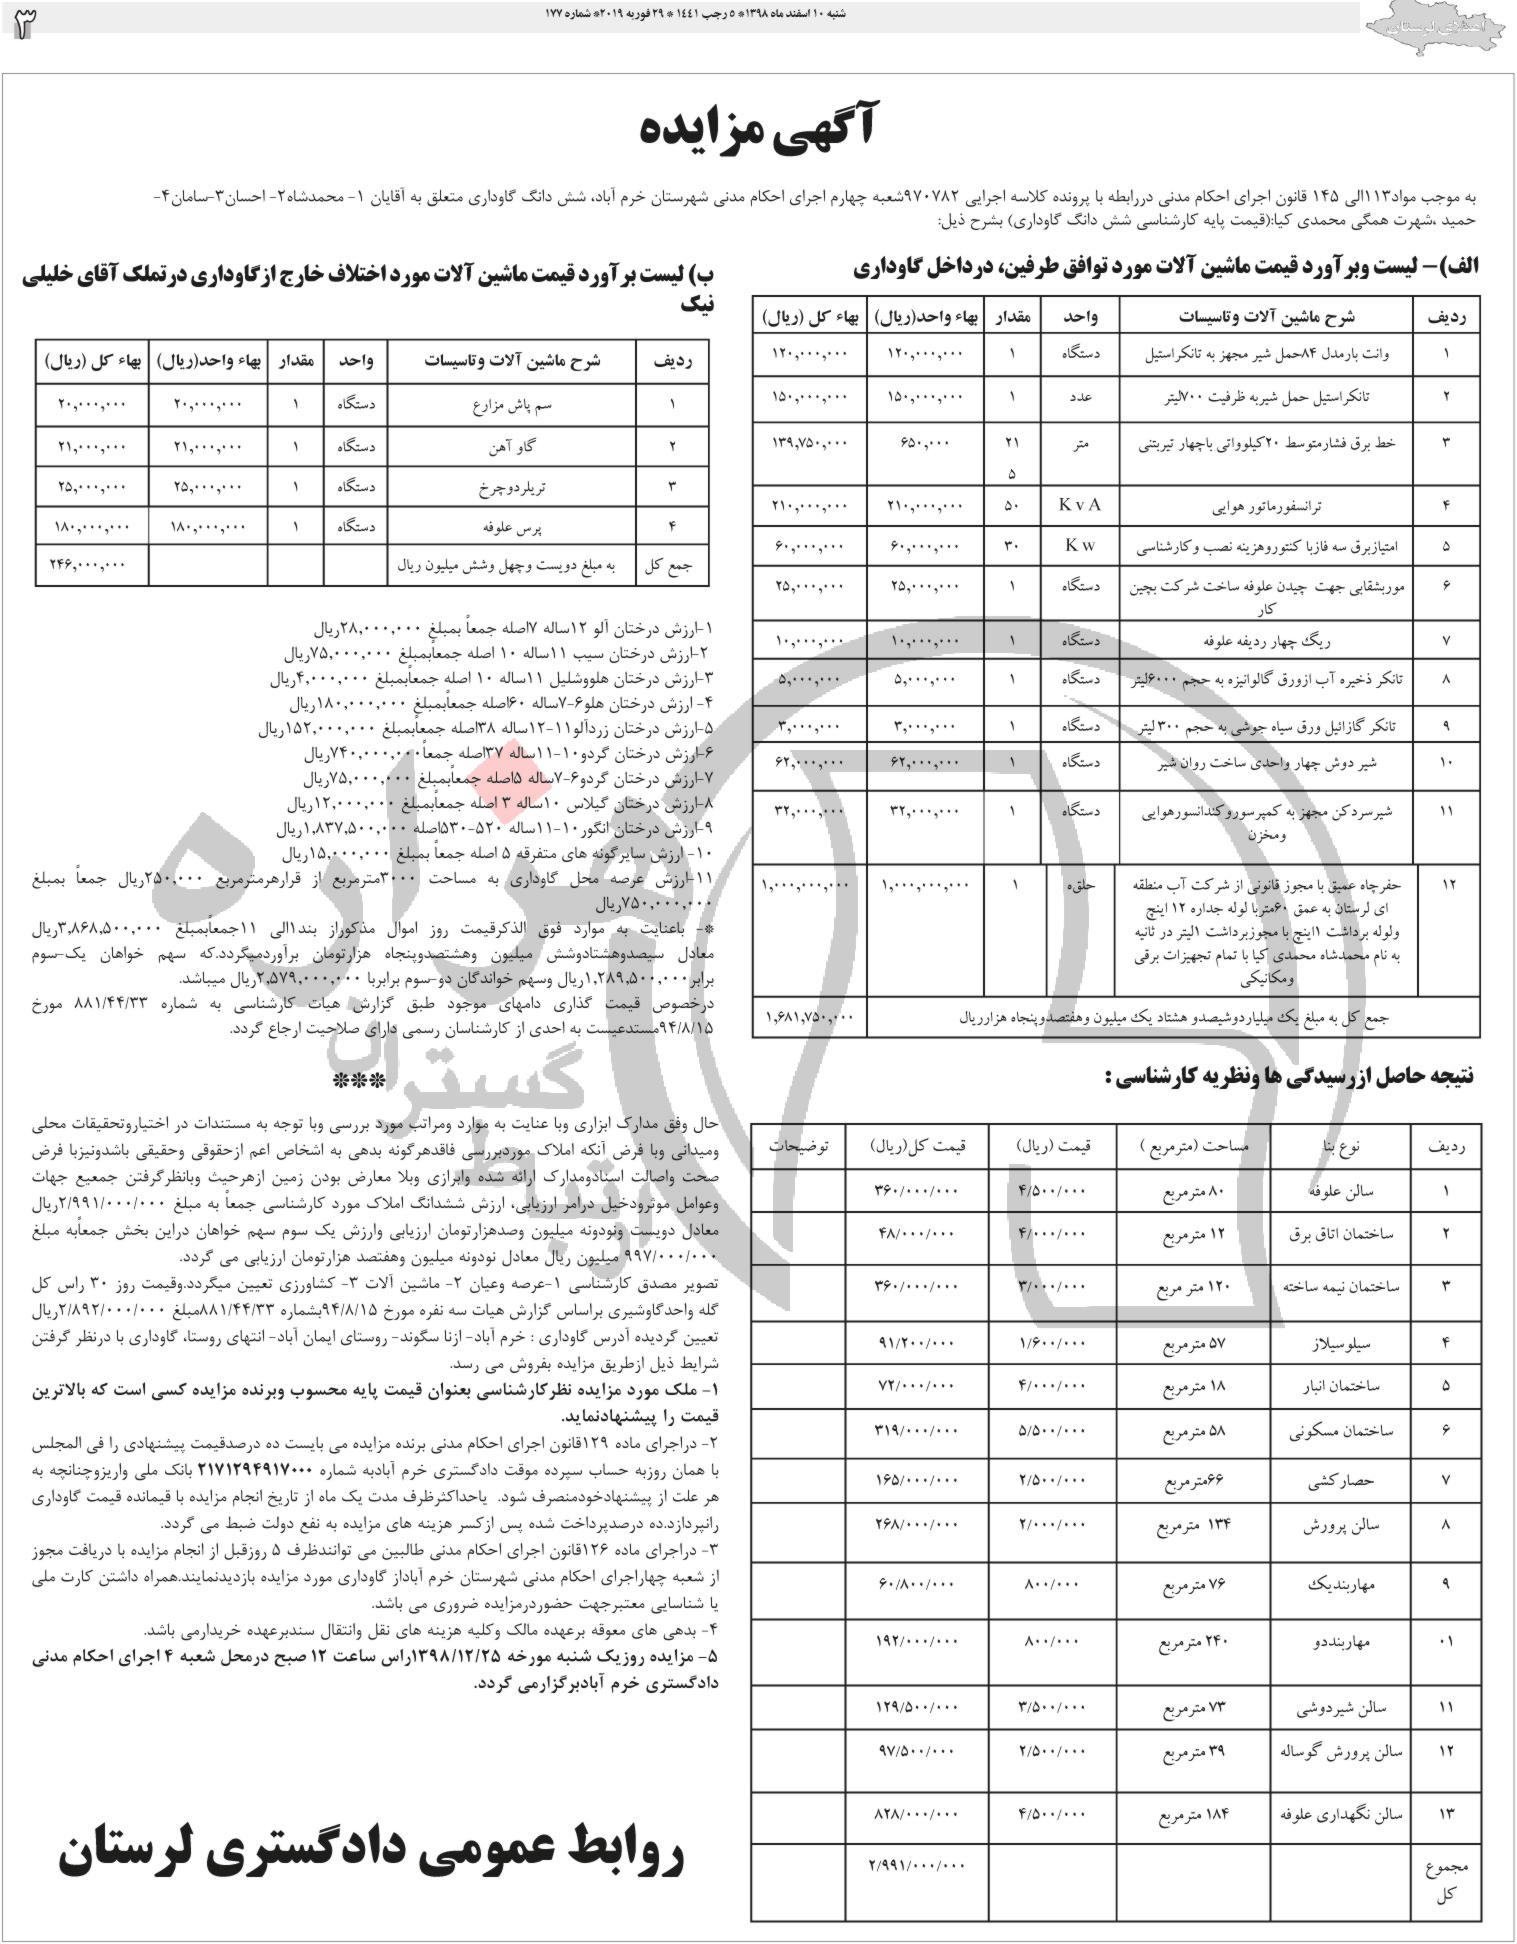 شنبه ۱۰ اسفند ماه ۱۳۹۸* ۵ رجب ۱۴۴۱ * ۲۹ فوریه ۲۰۱۹* شماره ۱۷۷
۳
اعتلای لرستان
آگهی مزایده
به موجب مواد۱۱۳الی ۱۴۵ قانون اجرای احکام مدنی دررابطه با پرونده کلاسه اجرایی ۹۷۰۷۸۲شعبه چهارم اجرای احکام مدنی شهرستان خرم آباد، شش دانگ گاوداری متعلق به آقایان ۱- محمدشاه۲- احسان۳-سامان۴-
حمید ،شهرت همگی محمدی کیا:(قیمت پایه کارشناسی شش دانگ گاوداری) بشرح ذیل:
الف)- لیست وبرآورد قیمت ماشین آلات مورد توافق طرفین، درداخل گاوداری
ردیف شرح ماشین آلات وتاسیسات واحد مقدار بهاء واحد(ریال) بهاء کل (ریال)
۱ وانت بارمدل ۸۴حمل شیر مجهز به تانکراستیل دستگاه ۱ ۱۲۰,۰۰۰,۰۰۰ ۱۲۰,۰۰۰,۰۰۰
۲ تانکراستیل حمل شیربه ظرفیت ۷۰۰لیتر عدد ۱ ۱۵۰,۰۰۰,۰۰۰ ۱۵۰,۰۰۰,۰۰۰
۳ خط برق فشارمتوسط ۲۰کیلوواتی باچهار تیربتنی متر ۲۱ ۶۵۰,۰۰۰ ۱۳۹,۷۵۰,۰۰۰
۵
۴ ترانسفورماتور هوایی K v A ۵۰ ۲۱۰,۰۰۰,۰۰۰ ۲۱۰,۰۰۰,۰۰۰
۵ امتیازبرق سه فازبا کنتوروهزینه نصب وکارشناسی K w ۳۰ ۶۰,۰۰۰,۰۰۰ ۶۰,۰۰۰,۰۰۰
۶ موربشقابی جهت چیدن علوفه ساخت شرکت بچین دستگاه ۱ ۲۵,۰۰۰,۰۰۰ ۲۵,۰۰۰,۰۰۰
کار
۷ ریگ چهار ردیفه علوفه دستگاه ۱ ۱۰,۰۰۰,۰۰۰ ۱۰,۰۰۰,۰۰۰
۸ تانکر ذخیره آب ازورق گالوانیزه به حجم ۶۰۰۰لیتر دستگاه ۱ ۵,۰۰۰,۰۰۰ ۵,۰۰۰,۰۰۰
۹ تانکر گازائیل ورق سیاه جوشی به حجم ۳۰۰لیتر دستگاه ۱ ۳,۰۰۰,۰۰۰ ۳,۰۰۰,۰۰۰
۱۰ شیر دوش چهار واحدی ساخت روان شیر دستگاه ۱ ۶۲,۰۰۰,۰۰۰ ۶۲,۰۰۰,۰۰۰
۱۱ شیرسردکن مجهز به کمپرسوروکندانسورهوایی دستگاه ۱ ۳۲,۰۰۰,۰۰۰ ۳۲,۰۰۰,۰۰۰
ومخزن
۱۲ حفرچاه عمیق با مجوز قانونی از شرکت آب منطقه حلقه ۱ ۱,۰۰۰,۰۰۰,۰۰۰ ۱,۰۰۰,۰۰۰,۰۰۰
ای لرستان به عمق ۶۰متربا لوله جداره ۱۲ اینچ
ولوله برداشت ۱اینچ با مجوزبرداشت ۱لیتر در ثانیه
به نام محمدشاه محمدی کیا با تمام تجهیزات برقی
ومکانیکی
جمع کل به مبلغ یک میلیاردوشیصدو هشتاد یک میلیون وهفتصدوپنجاه هزارریال ۱,۶۸۱,۷۵۰,۰۰۰
نتیجه حاصل ازرسیدگی ها ونظریه کارشناسی :
ردیف نوع بنا مساحت (مترمربع ) قیمت (ریال) قیمت کل(ریال) توضیحات
۱ سالن علوفه ۸۰ مترمربع ۴/۵۰۰/۰۰۰ ۳۶۰/۰۰۰/۰۰۰
۲ ساختمان اتاق برق ۱۲ مترمربع ۴/۰۰۰/۰۰۰ ۴۸/۰۰۰/۰۰۰
۳ ساختمان نیمه ساخته ۱۲۰ متر مربع ۳/۰۰۰/۰۰۰ ۳۶۰/۰۰۰/۰۰۰
۴ سیلوسیلاز ۵۷ مترمربع ۱/۶۰۰/۰۰۰ ۹۱/۲۰۰/۰۰۰
۵ ساختمان انبار ۱۸ مترمربع ۴/۰۰۰/۰۰۰ ۷۲/۰۰۰/۰۰۰
۶ ساختمان مسکونی ۵۸ مترمربع ۵/۵۰۰/۰۰۰ ۳۱۹/۰۰۰/۰۰۰
۷ حصارکشی ۶۶مترمربع ۲/۵۰۰/۰۰۰ ۱۶۵/۰۰۰/۰۰۰
۸ سالن پرورش ۱۳۴ مترمربع ۲/۰۰۰/۰۰۰ ۲۶۸/۰۰۰/۰۰۰
۹ مهاربندیک ۷۶ مترمربع ۸۰۰/۰۰۰ ۶۰/۸۰۰/۰۰۰
۰۱ مهاربنددو ۲۴۰ مترمربع ۸۰۰/۰۰۰ ۱۹۲/۰۰۰/۰۰۰
۱۱ سالن شیردوشی ۷۳ مترمربع ۳/۵۰۰/۰۰۰ ۱۲۹/۵۰۰/۰۰۰
۱۲ سالن پرورش گوساله ۳۹ مترمربع ۲/۵۰۰/۰۰۰ ۹۷/۵۰۰/۰۰۰
۱۳ سالن نگهداری علوفه ۱۸۴ مترمربع ۴/۵۰۰/۰۰۰ ۸۲۸/۰۰۰/۰۰۰
مجموع ۲/۹۹۱/۰۰۰/۰۰۰
کل
ب) لیست برآورد قیمت ماشین آلات مورد اختلاف خارج ازگاوداری درتملک آقای خلیلی
نیک
ردیف شرح ماشین آلات وتاسیسات واحد مقدار بهاء واحد(ریال) بهاء کل (ریال)
۱ سم پاش مزارع دستگاه ۱ ۲۰,۰۰۰,۰۰۰ ۲۰,۰۰۰,۰۰۰
۲ گاو آهن دستگاه ۱ ۲۱,۰۰۰,۰۰۰ ۲۱,۰۰۰,۰۰۰
۳ تریلردوچرخ دستگاه ۱ ۲۵,۰۰۰,۰۰۰ ۲۵,۰۰۰,۰۰۰
۴ پرس علوفه دستگاه ۱ ۱۸۰,۰۰۰,۰۰۰ ۱۸۰,۰۰۰,۰۰۰
جمع کل به مبلغ دویست وچهل وشش میلیون ریال ۲۴۶,۰۰۰,۰۰۰
۱-ارزش درختان آلو ۱۲ساله ۷اصله جمعاً بمبلغ ۲۸,۰۰۰,۰۰۰ریال
۲-ارزش درختان سیب ۱۱ساله ۱۰ اصله جمعاًبمبلغ ۷۵,۰۰۰,۰۰۰ریال
۳-ارزش درختان هلووشلیل ۱۱ساله ۱۰ اصله جمعاًبمبلغ ۴,۰۰۰,۰۰۰ریال
۴- ارزش درختان هلو۶-۷ساله ۶۰اصله جمعاًبمبلغ ۱۸۰,۰۰۰,۰۰۰ریال
۵-ارزش درختان زردآلو۱۱-۱۲ساله ۳۸اصله جمعاًبمبلغ ۱۵۲,۰۰۰,۰۰۰ریال
۶-ارزش درختان گردو۱۰-۱۱ساله ۳۷اصله جمعاً۷۴۰,۰۰۰,۰۰۰ریال
۷-ارزش درختان گردو۶-۷ساله ۵اصله جمعاًبمبلغ ۷۵,۰۰۰,۰۰۰ریال
۸-ارزش درختان گیلاس ۱۰ساله ۳ اصله جمعاًبمبلغ ۱۲,۰۰۰,۰۰۰ریال
۹-ارزش درختان انگور۱۰-۱۱ساله ۵۲۰-۵۳۰اصله ۱,۸۳۷,۵۰۰,۰۰۰ریال
۱۰- ارزش سایرگونه های متفرقه ۵ اصله جمعاً بمبلغ ۱۵,۰۰۰,۰۰۰ریال
۱۱-ارزش عرصه محل گاوداری به مساحت ۳۰۰۰مترمربع از قرارهرمترمربع ۲۵۰,۰۰۰ریال جمعاً بمبلغ
۷۵۰,۰۰۰,۰۰۰ریال
*- باعنایت به موارد فوق الذکرقیمت روز اموال مذکوراز بند۱الی ۱۱جمعاًبمبلغ ۳,۸۶۸,۵۰۰,۰۰۰ریال
معادل سیصدوهشتادوشش میلیون وهشتصدوپنجاه هزارتومان برآوردمیگردد.که سهم خواهان یک-سوم
برابر۱,۲۸۹,۵۰۰,۰۰۰ریال وسهم خواندگان دو-سوم برابربا ۲,۵۷۹,۰۰۰,۰۰۰ریال میباشد.
درخصوص قیمت گذاری دامهای موجود طبق گزارش هیات کارشناسی به شماره ۸۸۱/۴۴/۳۳ مورخ
۹۴/۸/۱۵مستدعیست به احدی از کارشناسان رسمی دارای صلاحیت ارجاع گردد.
***
حال وفق مدارک ابزاری وبا عنایت به موارد ومراتب مورد بررسی وبا توجه به مستندات در اختیاروتحقیقات محلی
ومیدانی وبا فرض آنکه املاک موردبررسی فاقدهرگونه بدهی به اشخاص اعم ازحقوقی وحقیقی باشدونیزبا فرض
صحت واصالت اسنادومدارک ارائه شده وابرازی وبلا معارض بودن زمین ازهرحیث وبانظرگرفتن جمعیع جهات
وعوامل موثرودخیل درامر ارزیابی، ارزش ششدانگ املاک مورد کارشناسی جمعاً به مبلغ ۲/۹۹۱/۰۰۰/۰۰۰ریال
معادل دویست ونودونه میلیون وصدهزارتومان ارزیابی وارزش یک سوم سهم خواهان دراین بخش جمعاًبه مبلغ
۹۹۷/۰۰۰/۰۰۰ میلیون ریال معادل نودونه میلیون وهفتصد هزارتومان ارزیابی می گردد.
تصویر مصدق کارشناسی ۱-عرصه وعیان ۲- ماشین آلات ۳- کشاورزی تعیین میگردد.وقیمت روز ۳۰ راس کل
گله واحدگاوشیری براساس گزارش هیات سه نفره مورخ ۹۴/۸/۱۵بشماره ۸۸۱/۴۴/۳۳مبلغ ۲/۸۹۲/۰۰۰/۰۰۰ریال
تعیین گردیده آدرس گاوداری : خرم آباد- ازنا سگوند- روستای ایمان آباد- انتهای روستا، گاوداری با درنظر گرفتن
شرایط ذیل ازطریق مزایده بفروش می رسد.
۱- ملک مورد مزایده نظرکارشناسی بعنوان قیمت پایه محسوب وبرنده مزایده کسی است که بالاترین
قیمت را پیشنهادنماید.
۲- دراجرای ماده ۱۲۹قانون اجرای احکام مدنی برنده مزایده می بایست ده درصدقیمت پیشنهادی را فی المجلس
با همان روزبه حساب سپرده موقت دادگستری خرم آبادبه شماره ۲۱۷۱۲۹۴۹۱۷۰۰۰ بانک ملی واریزوچنانچه به
هر علت از پیشنهادخودمنصرف شود. یاحداکثرظرف مدت یک ماه از تاریخ انجام مزایده با قیمانده قیمت گاوداری
رانپردازد.ده درصدپرداخت شده پس ازکسر هزینه های مزایده به نفع دولت ضبط می گردد.
۳- دراجرای ماده ۱۲۶قانون اجرای احکام مدنی طالبین می توانندظرف ۵ روزقبل از انجام مزایده با دریافت مجوز
از شعبه چهاراجرای احکام مدنی شهرستان خرم آباداز گاوداری مورد مزایده بازدیدنمایند.همراه داشتن کارت ملی
یا شناسایی معتبرجهت حضوردرمزایده ضروری می باشد.
۴- بدهی های معوقه برعهده مالک وکلیه هزینه های نقل وانتقال سندبرعهده خریدارمی باشد.
۵- مزایده روزیک شنبه مورخه ۱۳۹۸/۱۲/۲۵راس ساعت ۱۲ صبح درمحل شعبه ۴ اجرای احکام مدنی
دادگستری خرم آبادبرگزارمی گردد.
روابط عمومی دادگستری لرستان
هزاره
گستران
ارتباط